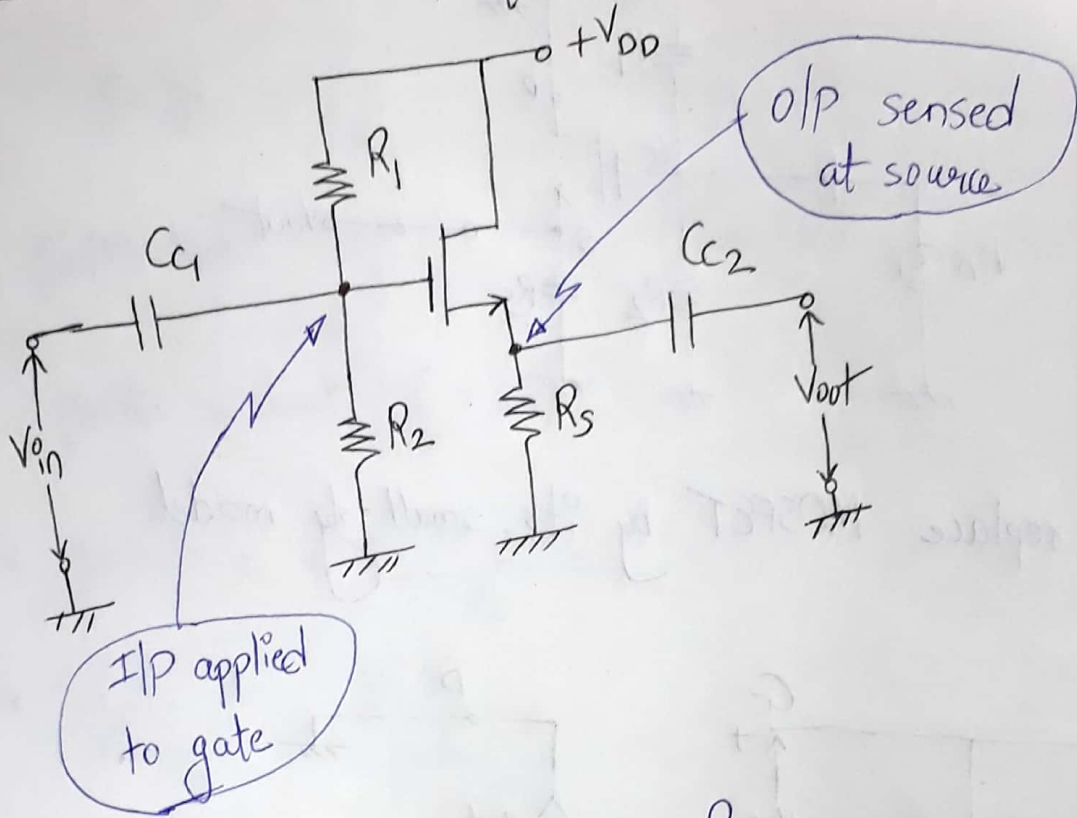 +VDD
O/P sensed
at source
R1
CC1
CC2
Vin
R2
RS
Vout
I/P applied
to gate